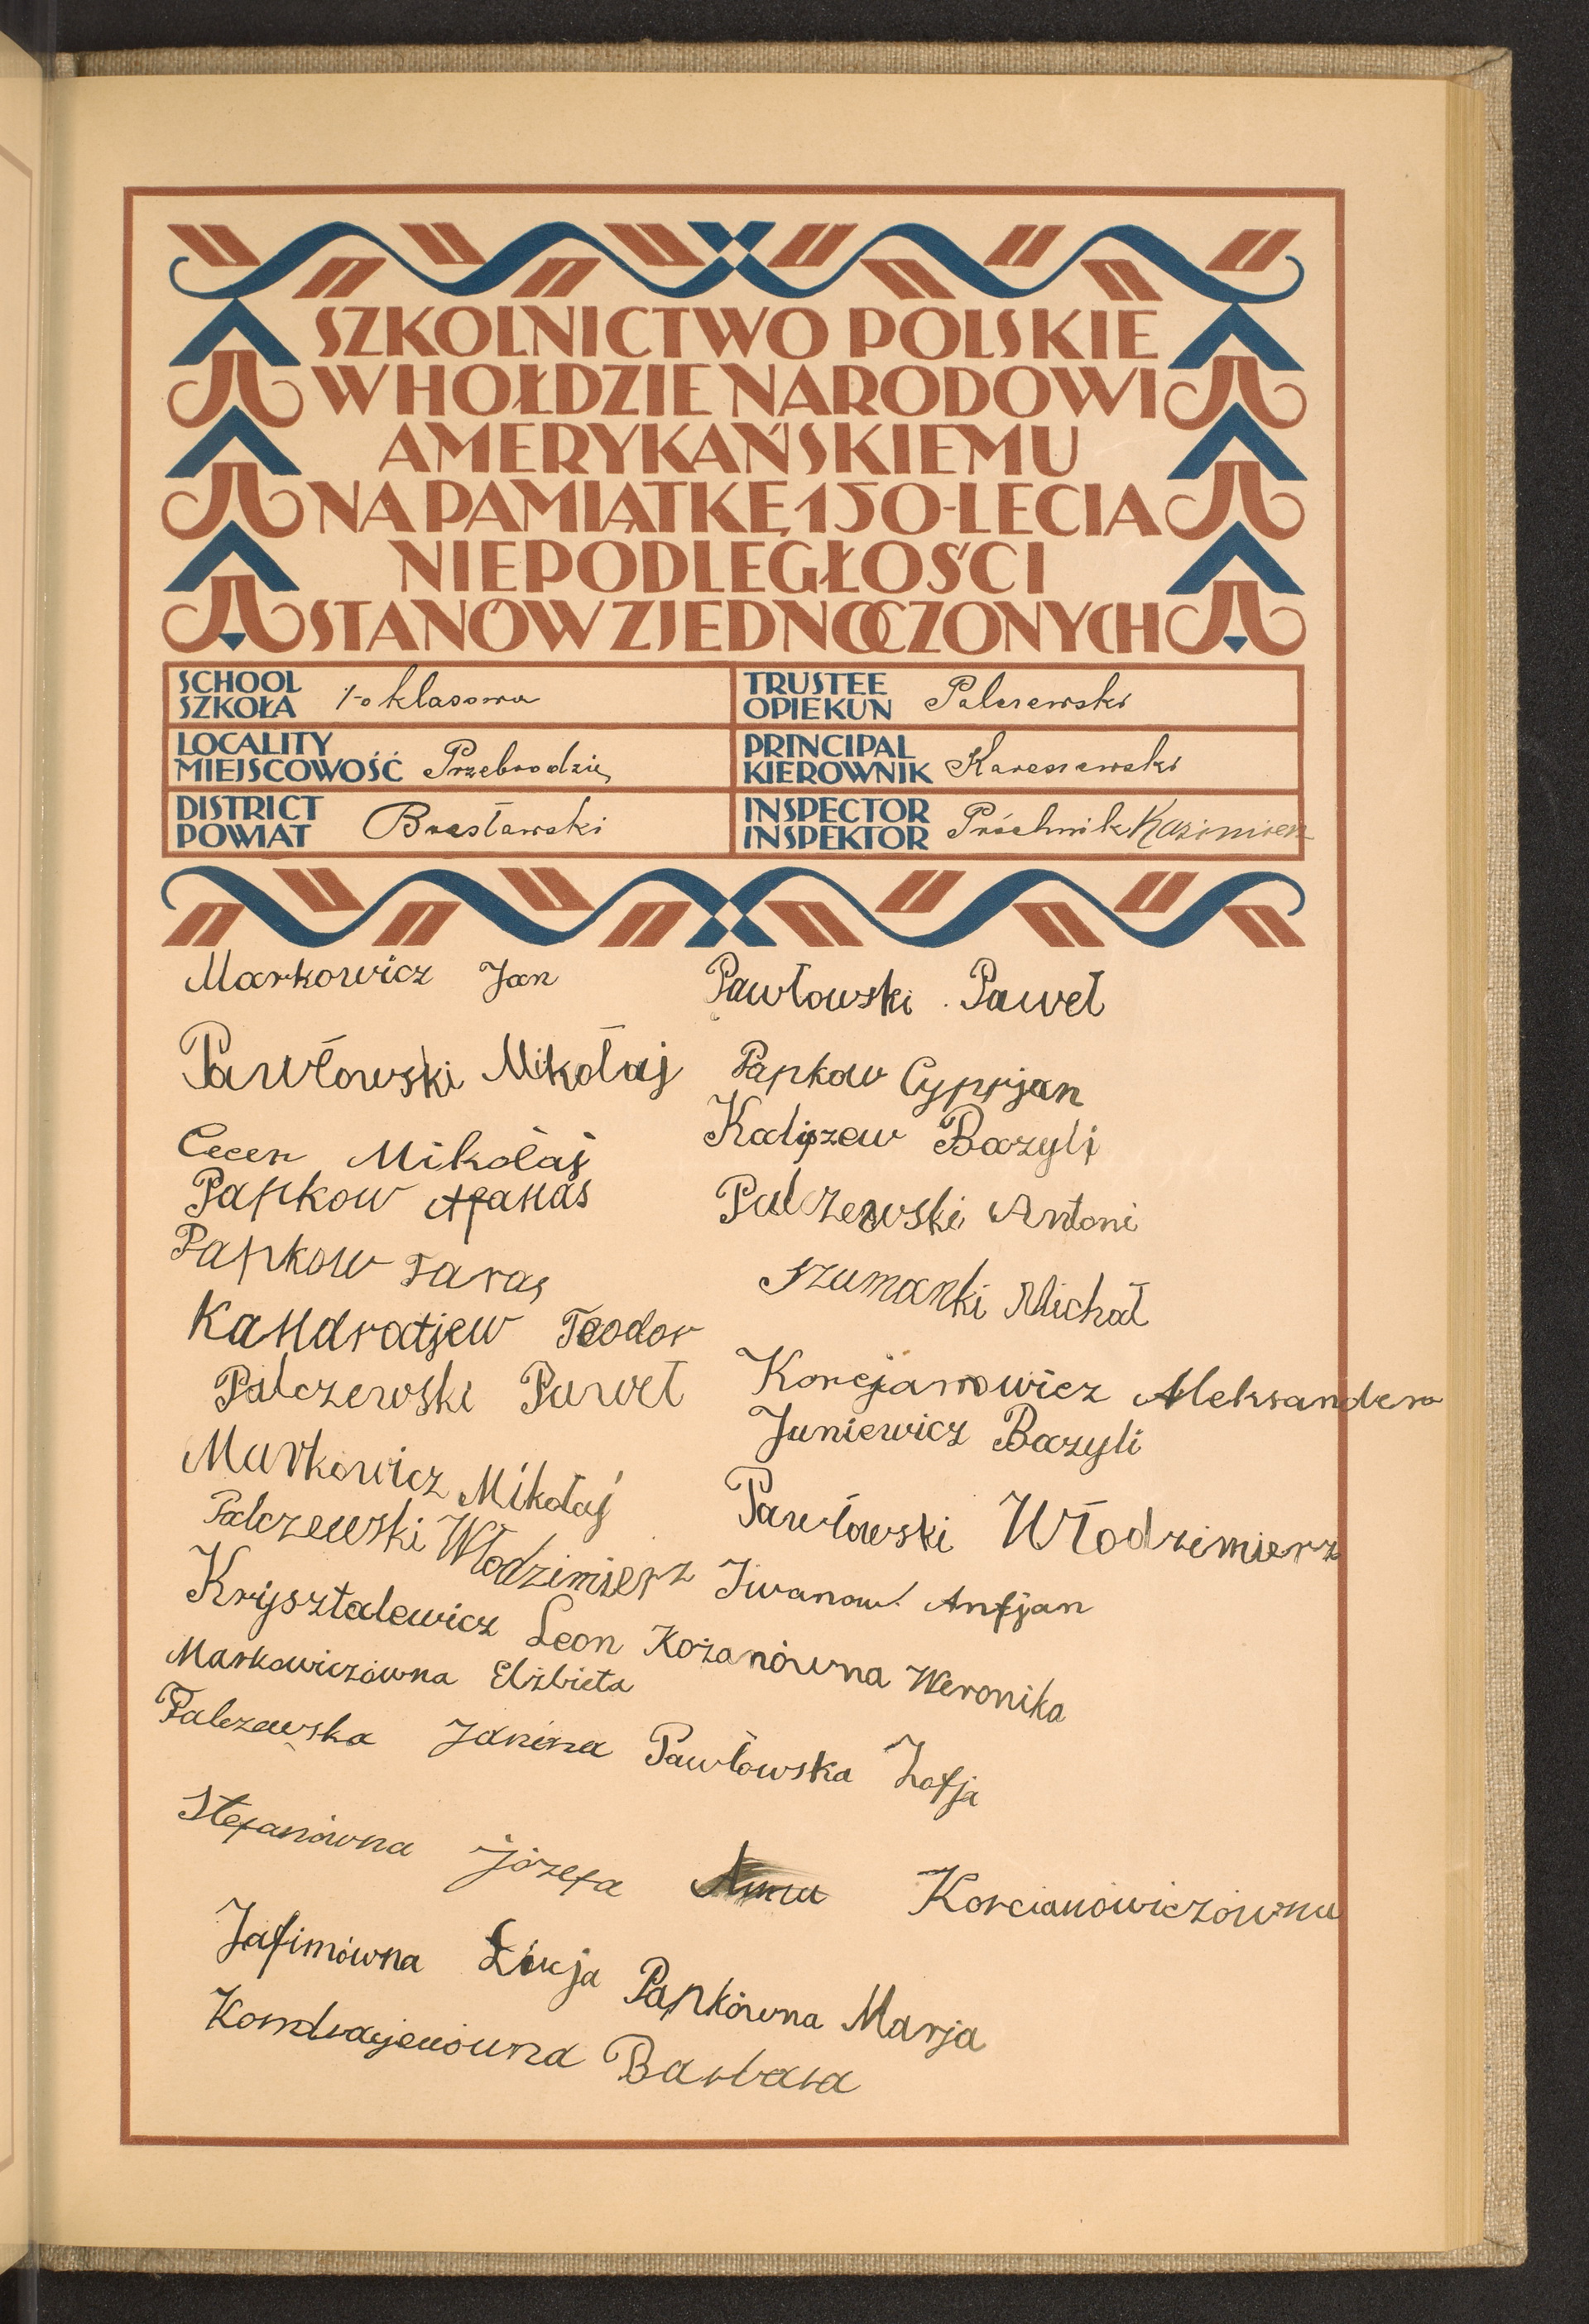 SZKOLNICTWO POLSKIE
W HOŁDZIE NARODOWI
AMERYKAŃSKIEMU
NA PAMIĄTKĘ 150-LECIA
NIEPODLEGŁOŚCI
STANÓW ZJEDNOCZONYCH
SCHOOL
SZKOŁA 1-o klasowa
TRUSTEE
OPIEKUN Palczewski
LOCALITY
MIEJSCOWOŚĆ Przebrodzie
PRINCIPAL
KIEROWNIK
DISTRICT
POWIAT Brasławski
INSPECTOR
INSPEKTOR Próchnik Kazimierz
Markowicz Jan
Pawłowski Paweł
Pawłowski Mikołaj
Papkow Cyprjan
Cecen Mikołaj
Kaliszew Bazyli
Papkow Afanas
Palczewski Antoni
Papkow Taras
Szumanki Michał
Kandratjew Teodor
Palczewski Paweł
Korcjanowicz Aleksander
Juniewicz Bazyli
Markowicz Mikołaj
Pawłowski Włodzimierz
Palczewski Włodzimierz
Iwanow Anfjan
Kryształewicz Leon
Kozanówna Weronika
Markowiczówna Elżbieta
Palczewska Janina
Pawłowska Zofja
Stefanówna Józefa
Korcianowiczówna
Jafimówna Łucja
Papkówna Marja
Kondrajewówna Barbara